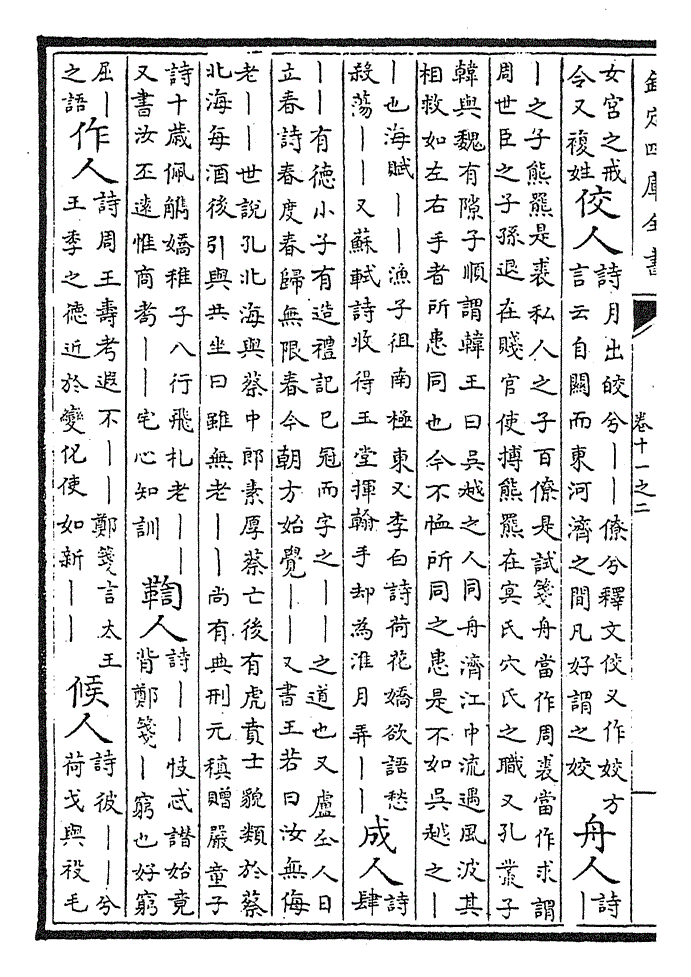 欽定四庫全書
卷十一之二
女宫之戒
令又複姓
佼人
詩月出皎兮——僚兮釋文佼又作姣方
言云自關而東河濟之間凡好謂之姣
舟人
詩
—
—之子熊羆是裘私人之子百僚是試箋舟當作周裘當作求謂
周世臣之子孫退在賤官使搏熊羆在冥氏穴氏之職又孔叢子
韓與魏有隙子順謂韓王曰吳越之人同舟濟江中流遇風波其
相救如左右手者所患同也今不恤所同之患是不如吳越之—
—也海賦——漁子徂南極東又李白詩荷花嬌欲語愁
殺蕩——又蘇軾詩收得玉堂揮翰手却為淮月弄——
成人
詩
肆
——有德小子有造禮記已冠而字之——之道也又盧仝人日
立春詩春度春歸無限春今朝方始覺——又書王若曰汝無侮
老——世說孔北海與蔡中郎素厚蔡亡後有虎賁士貌類於蔡
北海每酒後引與共坐曰雖無老——尚有典刑元稹贈嚴童子
詩十歲佩觹嬌稚子八行飛札老——
又書汝丕遠惟商耇——宅心知訓
鞫人
詩——忮忒譖始竟
背鄭箋—窮也好窮
屈—
之語
作人
詩周王壽考遐不——鄭箋言太王
王季之德近於變化使如新——
候人
詩彼——兮
荷戈與祋毛